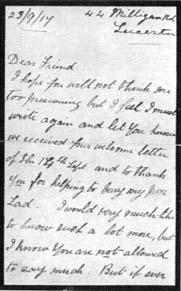 23/9/17 44 Milligan Rd
Leicester
Dear Friend
I hope you will not think me
too presuming but I feel I must
write again and let you know
we received your welcome letter
of the 14th Sept and to thank
you for helping to bury my poor
Lad. I would very much like
to know such a lot more, but
I know you are not allowed
to say much. But if ever